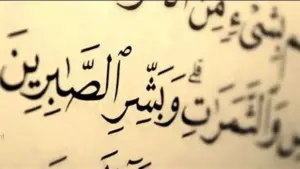 بِشَىْءٍ مِّنَ ٱ
وَٱلثَّمَرَٰتِ ۗ وَبَشِّرِ ٱلصَّـٰبِرِينَ